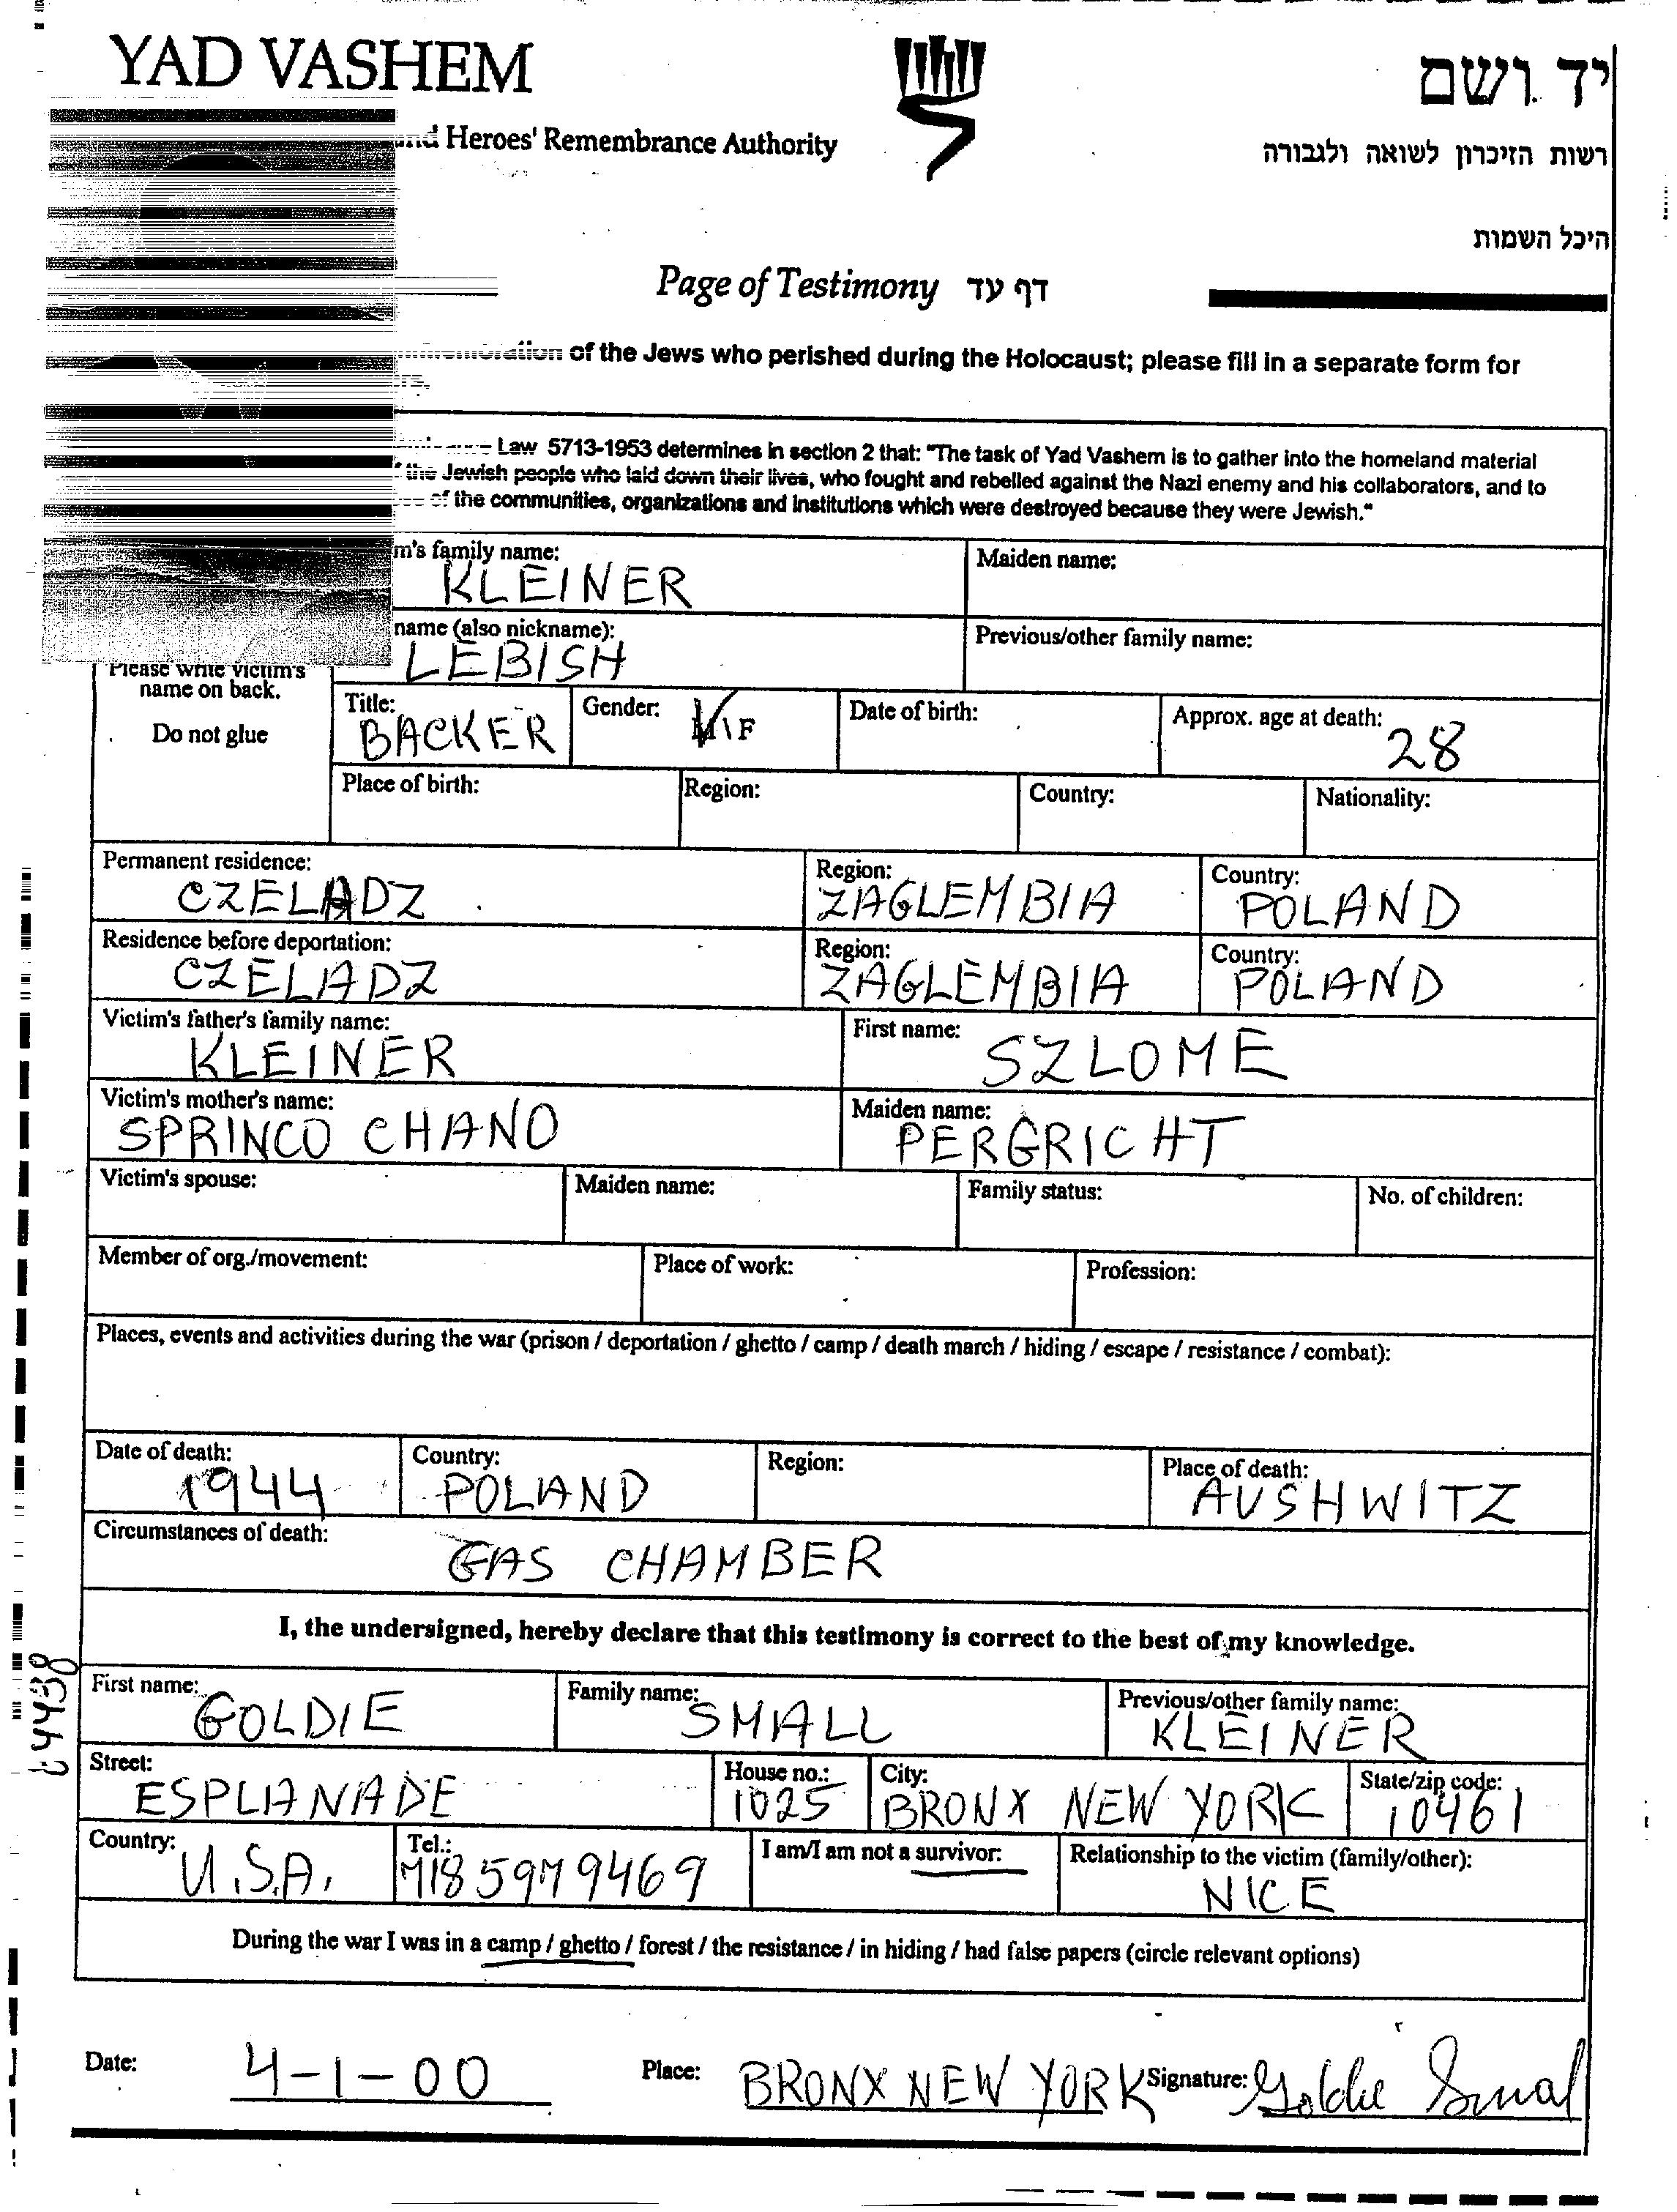 YAD VASHEM
יד ושם
Heroes' Remembrance Authority
רשות הזיכרון לשואה ולגבורה
היכל השמות
Page of Testimony דף עד
of the Jews who perished during the Holocaust; please fill in a separate form for
Law 5713-1953 determines in section 2 that: "The task of Yad Vashem is to gather into the homeland material
the Jewish people who laid down their lives, who fought and rebelled against the Nazi enemy and his collaborators, and to
of the communities, organizations and institutions which were destroyed because they were Jewish."
m's family name: KLEINER
Maiden name:
name (also nickname): LEBISH
Previous/other family name:
Please write victim's
name on back.
Do not glue
Title: BACKER
Gender: M/F
Date of birth:
Approx. age at death: 28
Place of birth:
Region:
Country:
Nationality:
Permanent residence: CZELADZ
Region: ZAGLEMBIA
Country: POLAND
Residence before deportation: CZELADZ
Region: ZAGLEMBIA
Country: POLAND
Victim's father's family name: KLEINER
First name: SZLOME
Victim's mother's name: SPRINCO CHANO
Maiden name: PERGRICHT
Victim's spouse:
Maiden name:
Family status:
No. of children:
Member of org./movement:
Place of work:
Profession:
Places, events and activities during the war (prison / deportation / ghetto / camp / death march / hiding / escape / resistance / combat):
Date of death: 1944
Country: POLAND
Region:
Place of death: AUSHWITZ
Circumstances of death: GAS CHAMBER
I, the undersigned, hereby declare that this testimony is correct to the best of my knowledge.
First name: GOLDIE
Family name: SMALL
Previous/other family name: KLEINER
Street: ESPLANADE
House no.: 1025
City: BRONX NEW YORK
State/zip code: 10461
Country: U.S.A.
Tel.: 718 597 9469
I am/I am not a survivor:
Relationship to the victim (family/other): NICE
During the war I was in a camp / ghetto / forest / the resistance / in hiding / had false papers (circle relevant options)
Date: 4-1-00
Place: BRONX NEW YORK
Signature: Goldie Smal